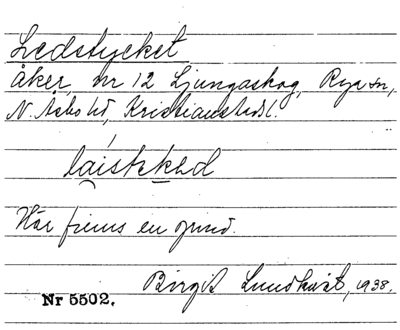 Ledstycket
åker, nr 12 Ljungaskog, Rya sn,
N. Åsbo hd, Kristianstads l.
Här finns en grind.
Birgit Lundkvist, 1938.
Nr 5502.